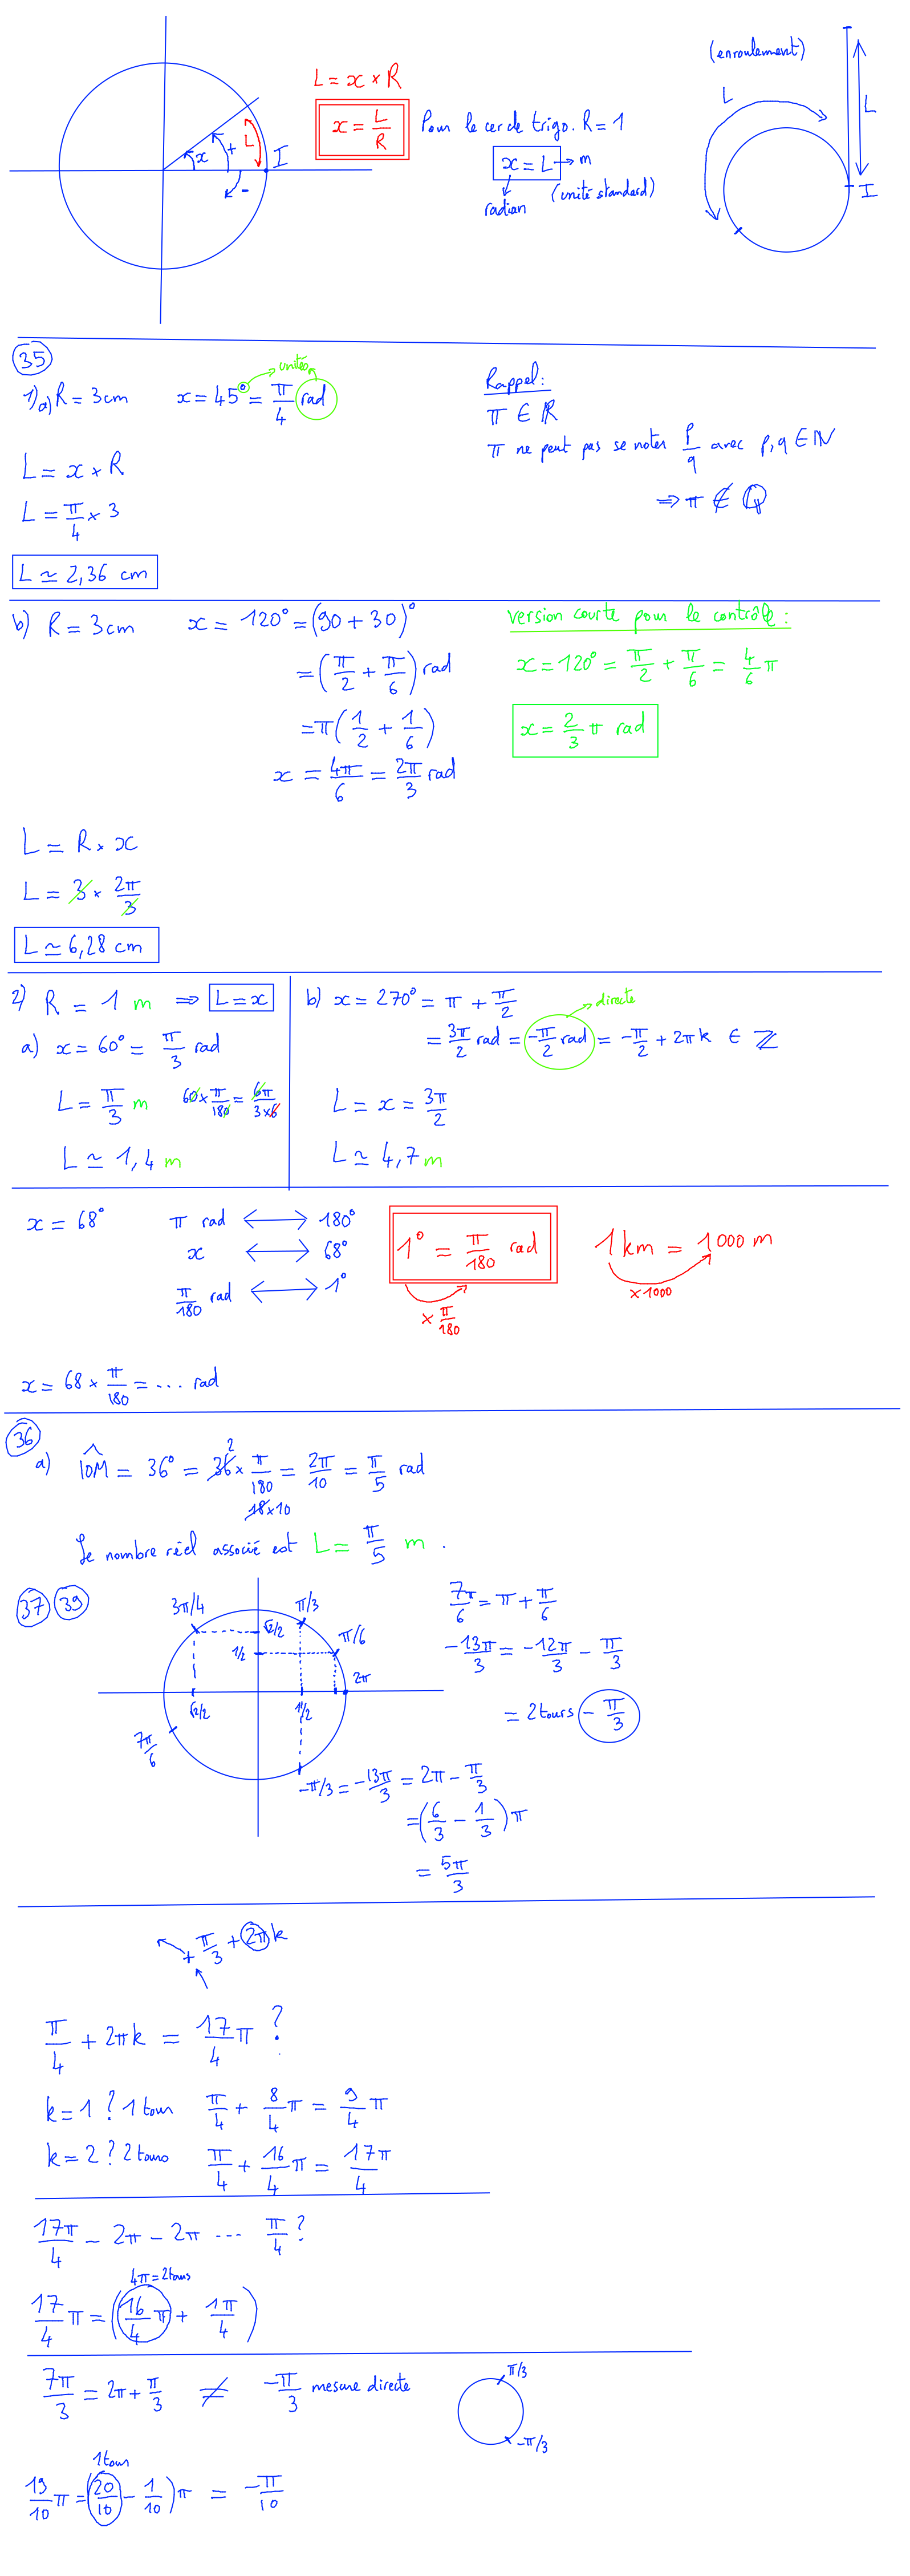 L = x × R
x = L/R
Pour le cercle trigo. R = 1
x = L → m
radian (unité standard)
x + L I
-
(enroulement)
L
L
I
35
unités
1) a) R = 3 cm x = 45° = π/4 rad
L = x × R
L = π/4 × 3
L ≃ 2,36 cm
Rappel :
π ∈ ℝ
π ne peut pas se noter p/q avec p, q ∈ ℕ
⇒ π ∉ ℚ
b) R = 3 cm x = 120° = (90 + 30)°
= (π/2 + π/6) rad
= π(1/2 + 1/6)
x = 4π/6 = 2π/3 rad
version courte pour le contrôle :
x = 120° = π/2 + π/6 = 4/6 π
x = 2/3 π rad
L = R × x
L = 3 × 2π/3
L ≃ 6,28 cm
2) R = 1 m ⇒ L = x
a) x = 60° = π/3 rad
L = π/3 m 60 × π/180 = 6π/3×6
L ≃ 1,4 m
b) x = 270° = π + π/2
directe
= 3π/2 rad = -π/2 rad = -π/2 + 2πk ∈ ℤ
L = x = 3π/2
L ≃ 4,7 m
x = 68° π rad ↔ 180°
x ↔ 68°
π/180 rad ↔ 1°
1° = π/180 rad
× π/180
1 km = 1000 m
×1000
x = 68 × π/180 = ... rad
36
a) IOM = 36° = 36 × π/180 = 2π/10 = π/5 rad
2
18×10
Le nombre réel associé est L = π/5 m .
37 39
3π/4 π/3
√2/2
1/2 π/6
2π
√2/2 1/2
7π/6
7π/6 = π + π/6
-13π/3 = -12π/3 - π/3
= 2 tours - π/3
-π/3 = -13π/3 = 2π - π/3
= (6/3 - 1/3) π
= 5π/3
+ π/3 + 2πk
π/4 + 2πk = 17/4 π ?
k = 1 ? 1 tour π/4 + 8/4 π = 9/4 π
k = 2 ? 2 tours π/4 + 16/4 π = 17π/4
17π/4 - 2π - 2π ... π/4 ?
4π = 2 tours
17/4 π = (16/4 π + 1π/4)
7π/3 = 2π + π/3 ≠ -π/3 mesure directe
π/3
-π/3
1 tour
19/10 π = (20/10 - 1/10) π = -π/10